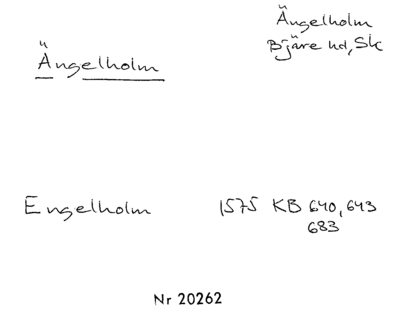 Ängelholm
Bjäre hd, Sk
Ängelholm
Engelholm 1575 KB 640, 643
683
Nr 20262